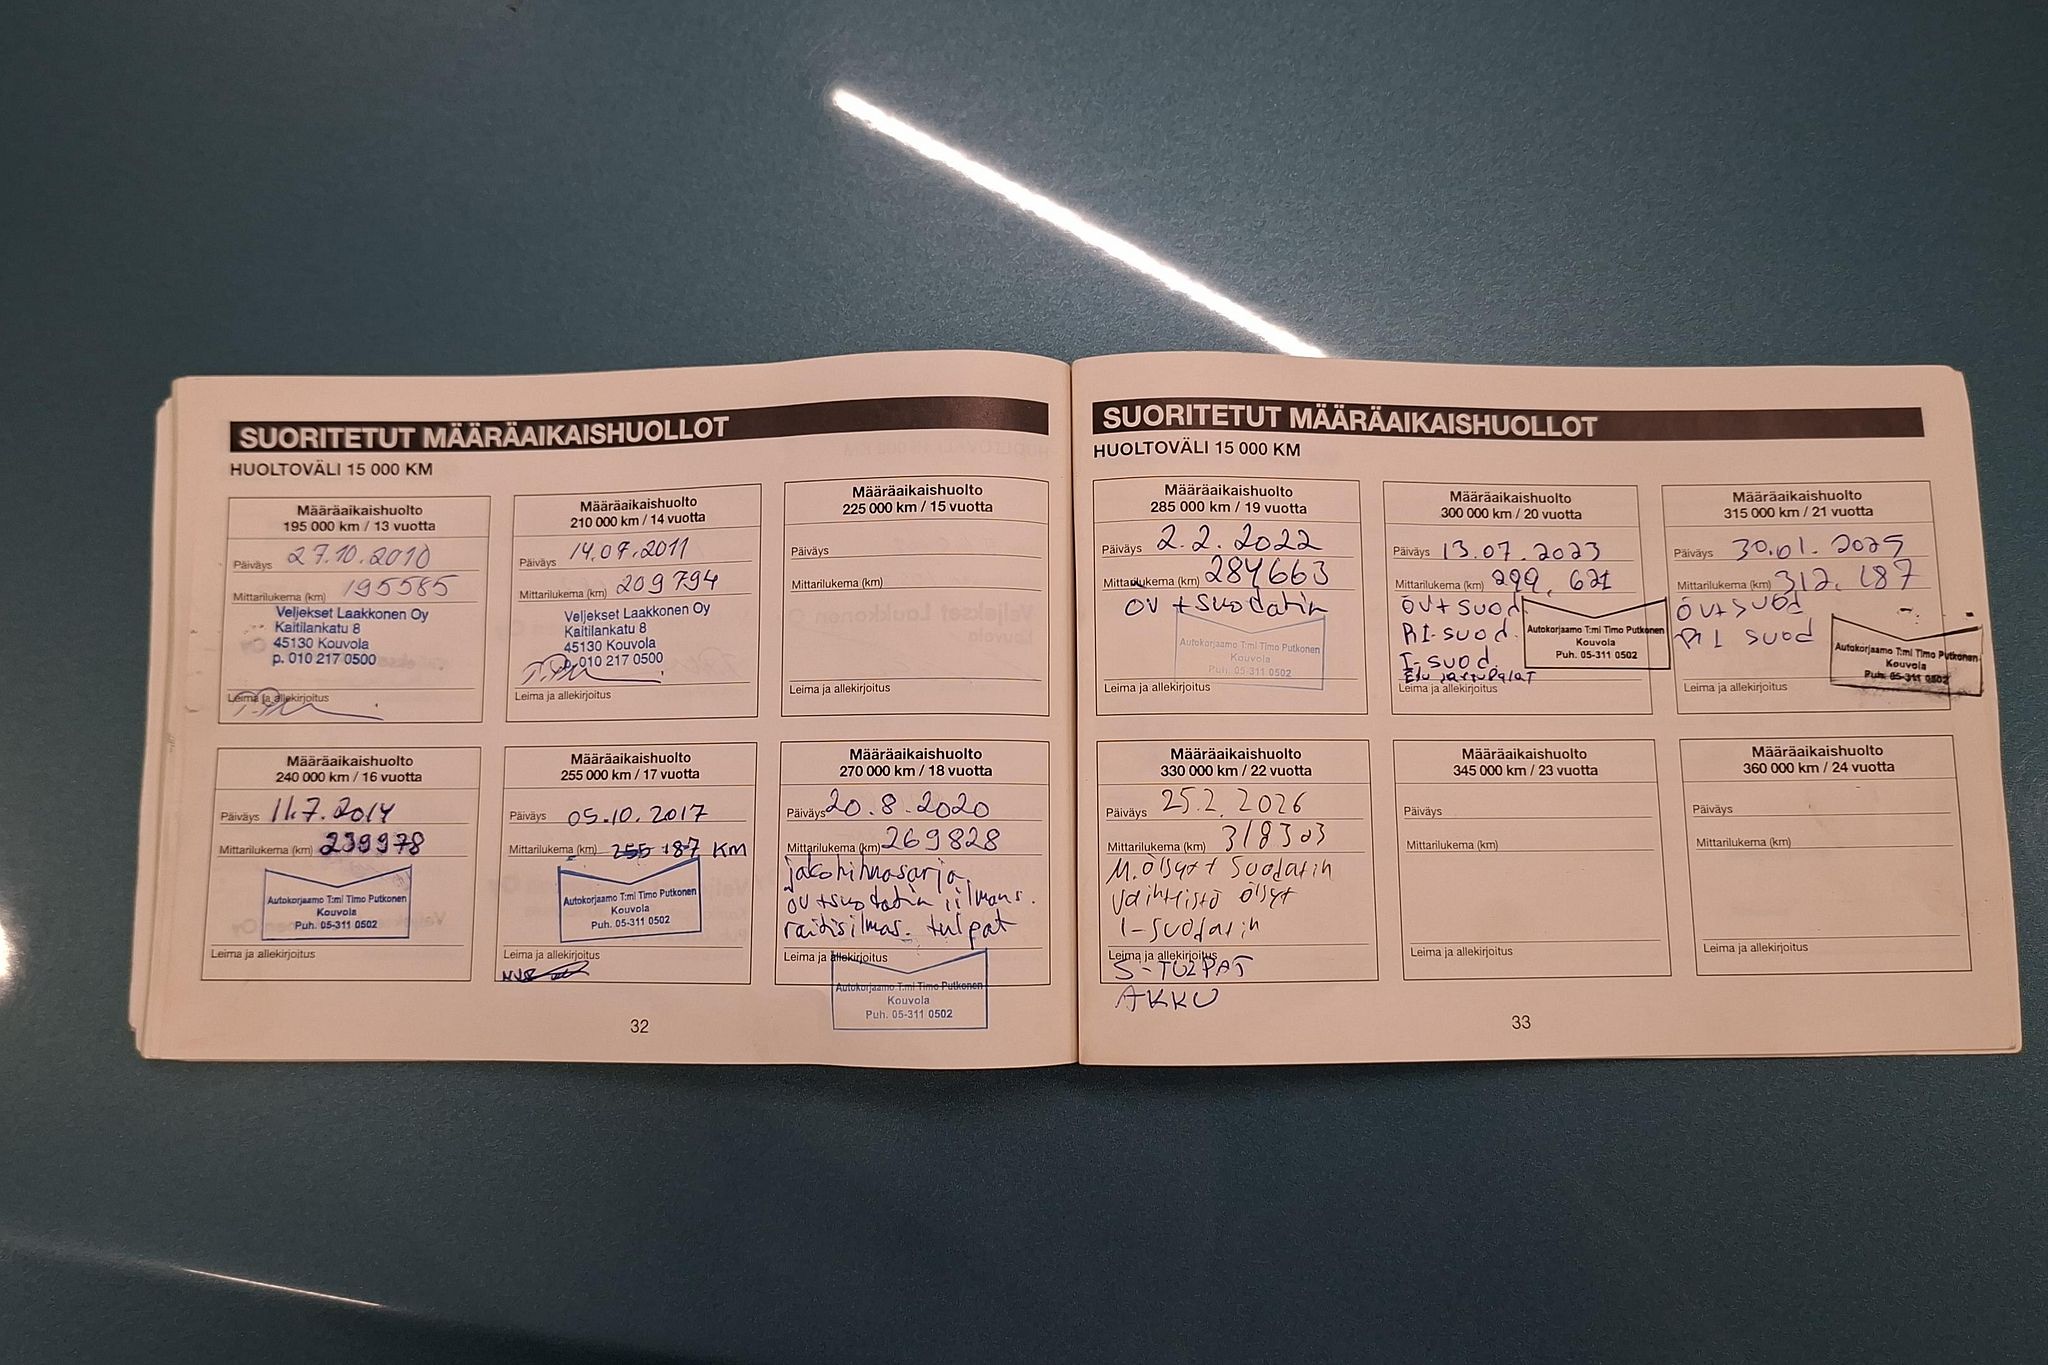 SUORITETUT MÄÄRÄAIKAISHUOLLOT
HUOLTOVÄLI 15 000 KM
Määräaikaishuolto
195 000 km / 13 vuotta
Päiväys 27.10.2010
Mittarilukema (km) 195585
Veljekset Laakkonen Oy
Kaitilankatu 8
45130 Kouvola
p. 010 217 0500
Leima ja allekirjoitus
Määräaikaishuolto
210 000 km / 14 vuotta
Päiväys 14.07.2011
Mittarilukema (km) 209794
Veljekset Laakkonen Oy
Kaitilankatu 8
45130 Kouvola
p. 010 217 0500
Leima ja allekirjoitus
Määräaikaishuolto
225 000 km / 15 vuotta
Päiväys
Mittarilukema (km)
Leima ja allekirjoitus
Määräaikaishuolto
240 000 km / 16 vuotta
Päiväys 11.7.2014
Mittarilukema (km) 239978
Autokorjaamo T:mi Timo Putkonen
Kouvola
Puh. 05-311 0502
Leima ja allekirjoitus
Määräaikaishuolto
255 000 km / 17 vuotta
Päiväys 05.10.2017
Mittarilukema (km) 255 187 KM
Autokorjaamo T:mi Timo Putkonen
Kouvola
Puh. 05-311 0502
Leima ja allekirjoitus
Määräaikaishuolto
270 000 km / 18 vuotta
Päiväys 20.8.2020
Mittarilukema (km) 269828
jakohihnasarja
öv+suodatin, ilmans.
raitisilmas. tulpat
Leima ja allekirjoitus
Autokorjaamo T:mi Timo Putkonen
Kouvola
Puh. 05-311 0502
32
SUORITETUT MÄÄRÄAIKAISHUOLLOT
HUOLTOVÄLI 15 000 KM
Määräaikaishuolto
285 000 km / 19 vuotta
Päiväys 2.2.2022
Mittarilukema (km) 284663
öv + suodatin
Autokorjaamo T:mi Timo Putkonen
Kouvola
Puh. 05-311 0502
Leima ja allekirjoitus
Määräaikaishuolto
300 000 km / 20 vuotta
Päiväys 13.07.2023
Mittarilukema (km) 299.621
ÖV+ SUOD.
RI-SUOD.
I-SUOD.
Etu jarrupalat
Autokorjaamo T:mi Timo Putkonen
Kouvola
Puh. 05-311 0502
Leima ja allekirjoitus
Määräaikaishuolto
315 000 km / 21 vuotta
Päiväys 30.01.2025
Mittarilukema (km) 312.187
ÖV+ SUOD
RI SUOD
Autokorjaamo T:mi Timo Putkonen
Kouvola
Puh. 05-311 0502
Leima ja allekirjoitus
Määräaikaishuolto
330 000 km / 22 vuotta
Päiväys 25.2.2026
Mittarilukema (km) 318303
M.ÖLJYT + Suodatin
vaihteistö öljyt
I-Suodatin
Leima ja allekirjoitus
S-TULPAT
AKKU
Määräaikaishuolto
345 000 km / 23 vuotta
Päiväys
Mittarilukema (km)
Leima ja allekirjoitus
Määräaikaishuolto
360 000 km / 24 vuotta
Päiväys
Mittarilukema (km)
Leima ja allekirjoitus
33